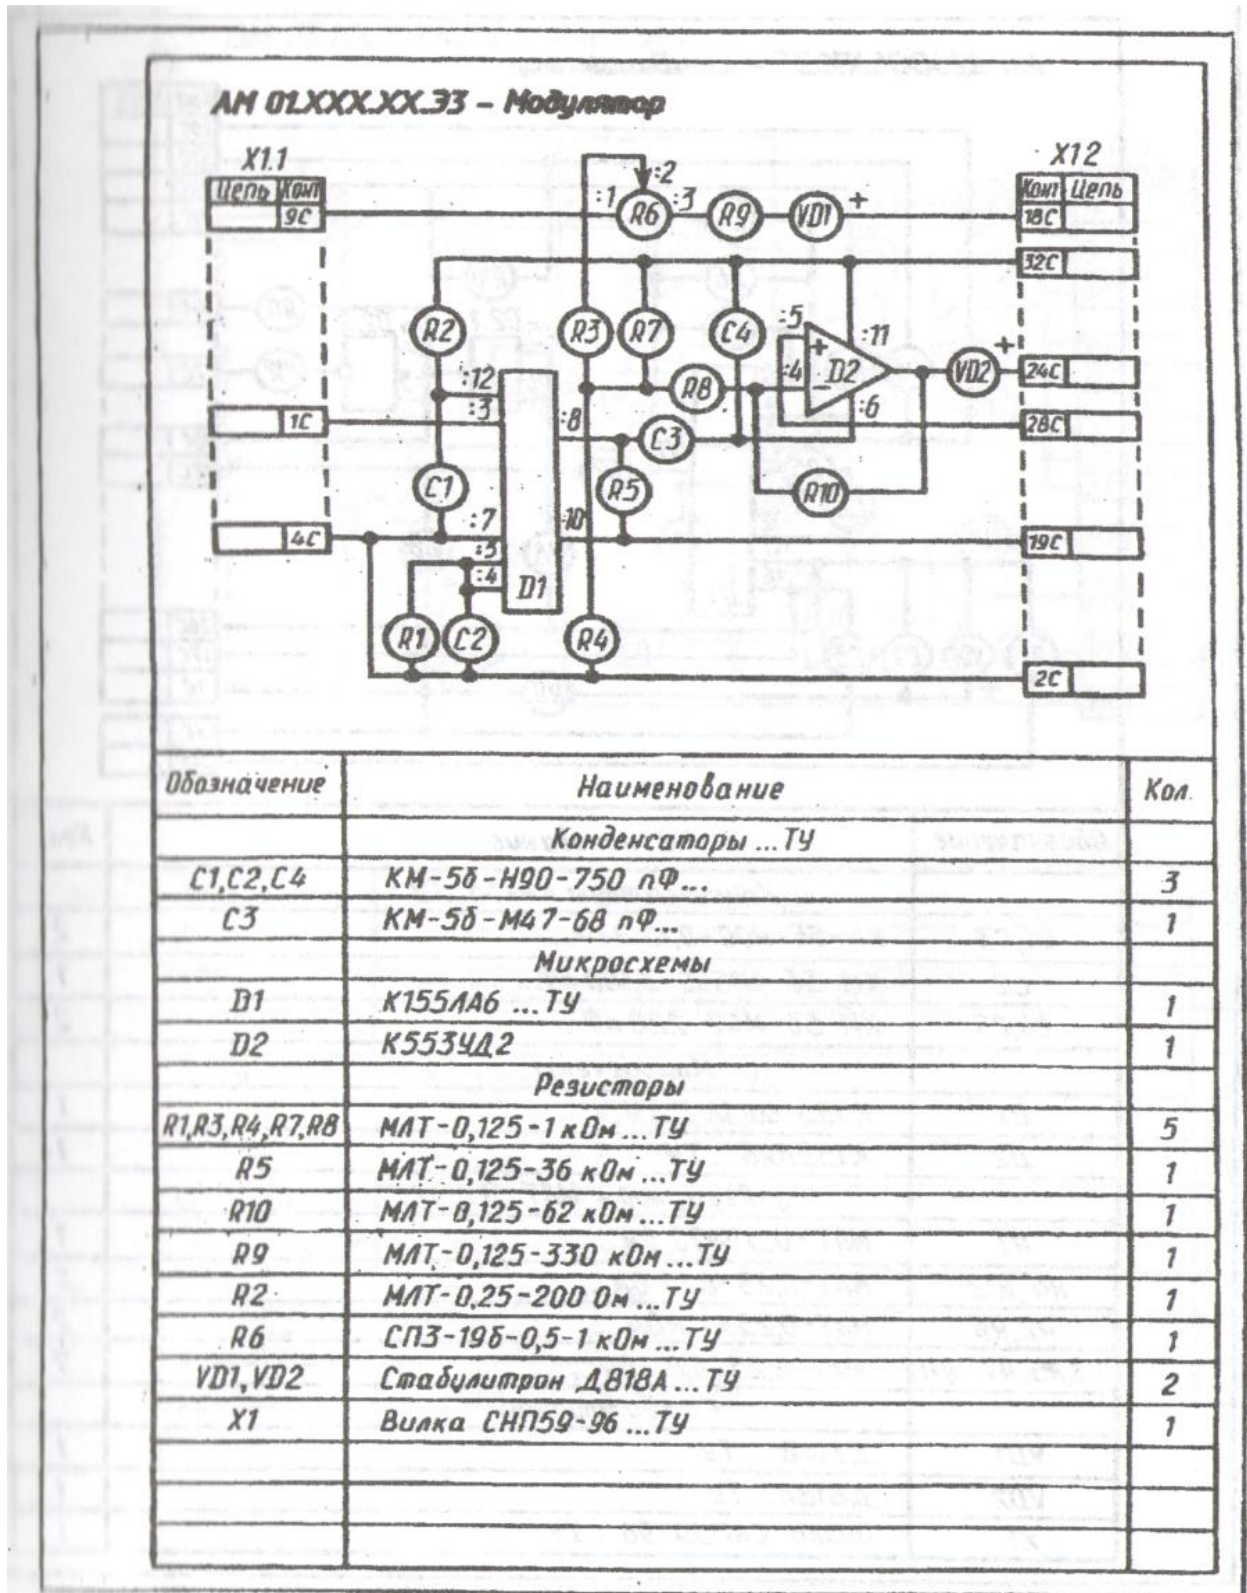 АМ 01.XXX.XX.ЭЗ – Модулятор
X1.1
X12
Цепь Конт
9С
1С
4С
Конт Цепь
18С
32С
24С
28С
19С
2С
:1 R6 :2 :3 R9 VD1 +
R2 R3 R7 C4 :5 + D2 :11 VD2 +
:12 :3 :8 R8 :4 – :6
C3
C1 R5 R10
:7 :10
:5
:4 D1
R1 C2 R4
Обозначение Наименование Кол.
Конденсаторы ...ТУ
С1,С2,С4 КМ-5б-Н90-750 пФ... 3
С3 КМ-5б-М47-68 пФ... 1
Микросхемы
D1 К155ЛА6 ...ТУ 1
D2 К553УД2 1
Резисторы
R1,R3,R4,R7,R8 МЛТ-0,125-1 кОм ...ТУ 5
R5 МЛТ-0,125-36 кОм ...ТУ 1
R10 МЛТ-0,125-62 кОм ...ТУ 1
R9 МЛТ-0,125-330 кОм ...ТУ 1
R2 МЛТ-0,25-200 Ом ...ТУ 1
R6 СП3-19б-0,5-1 кОм ...ТУ 1
VD1,VD2 Стабулитрон Д818А...ТУ 2
X1 Вилка СНП59-96 ...ТУ 1